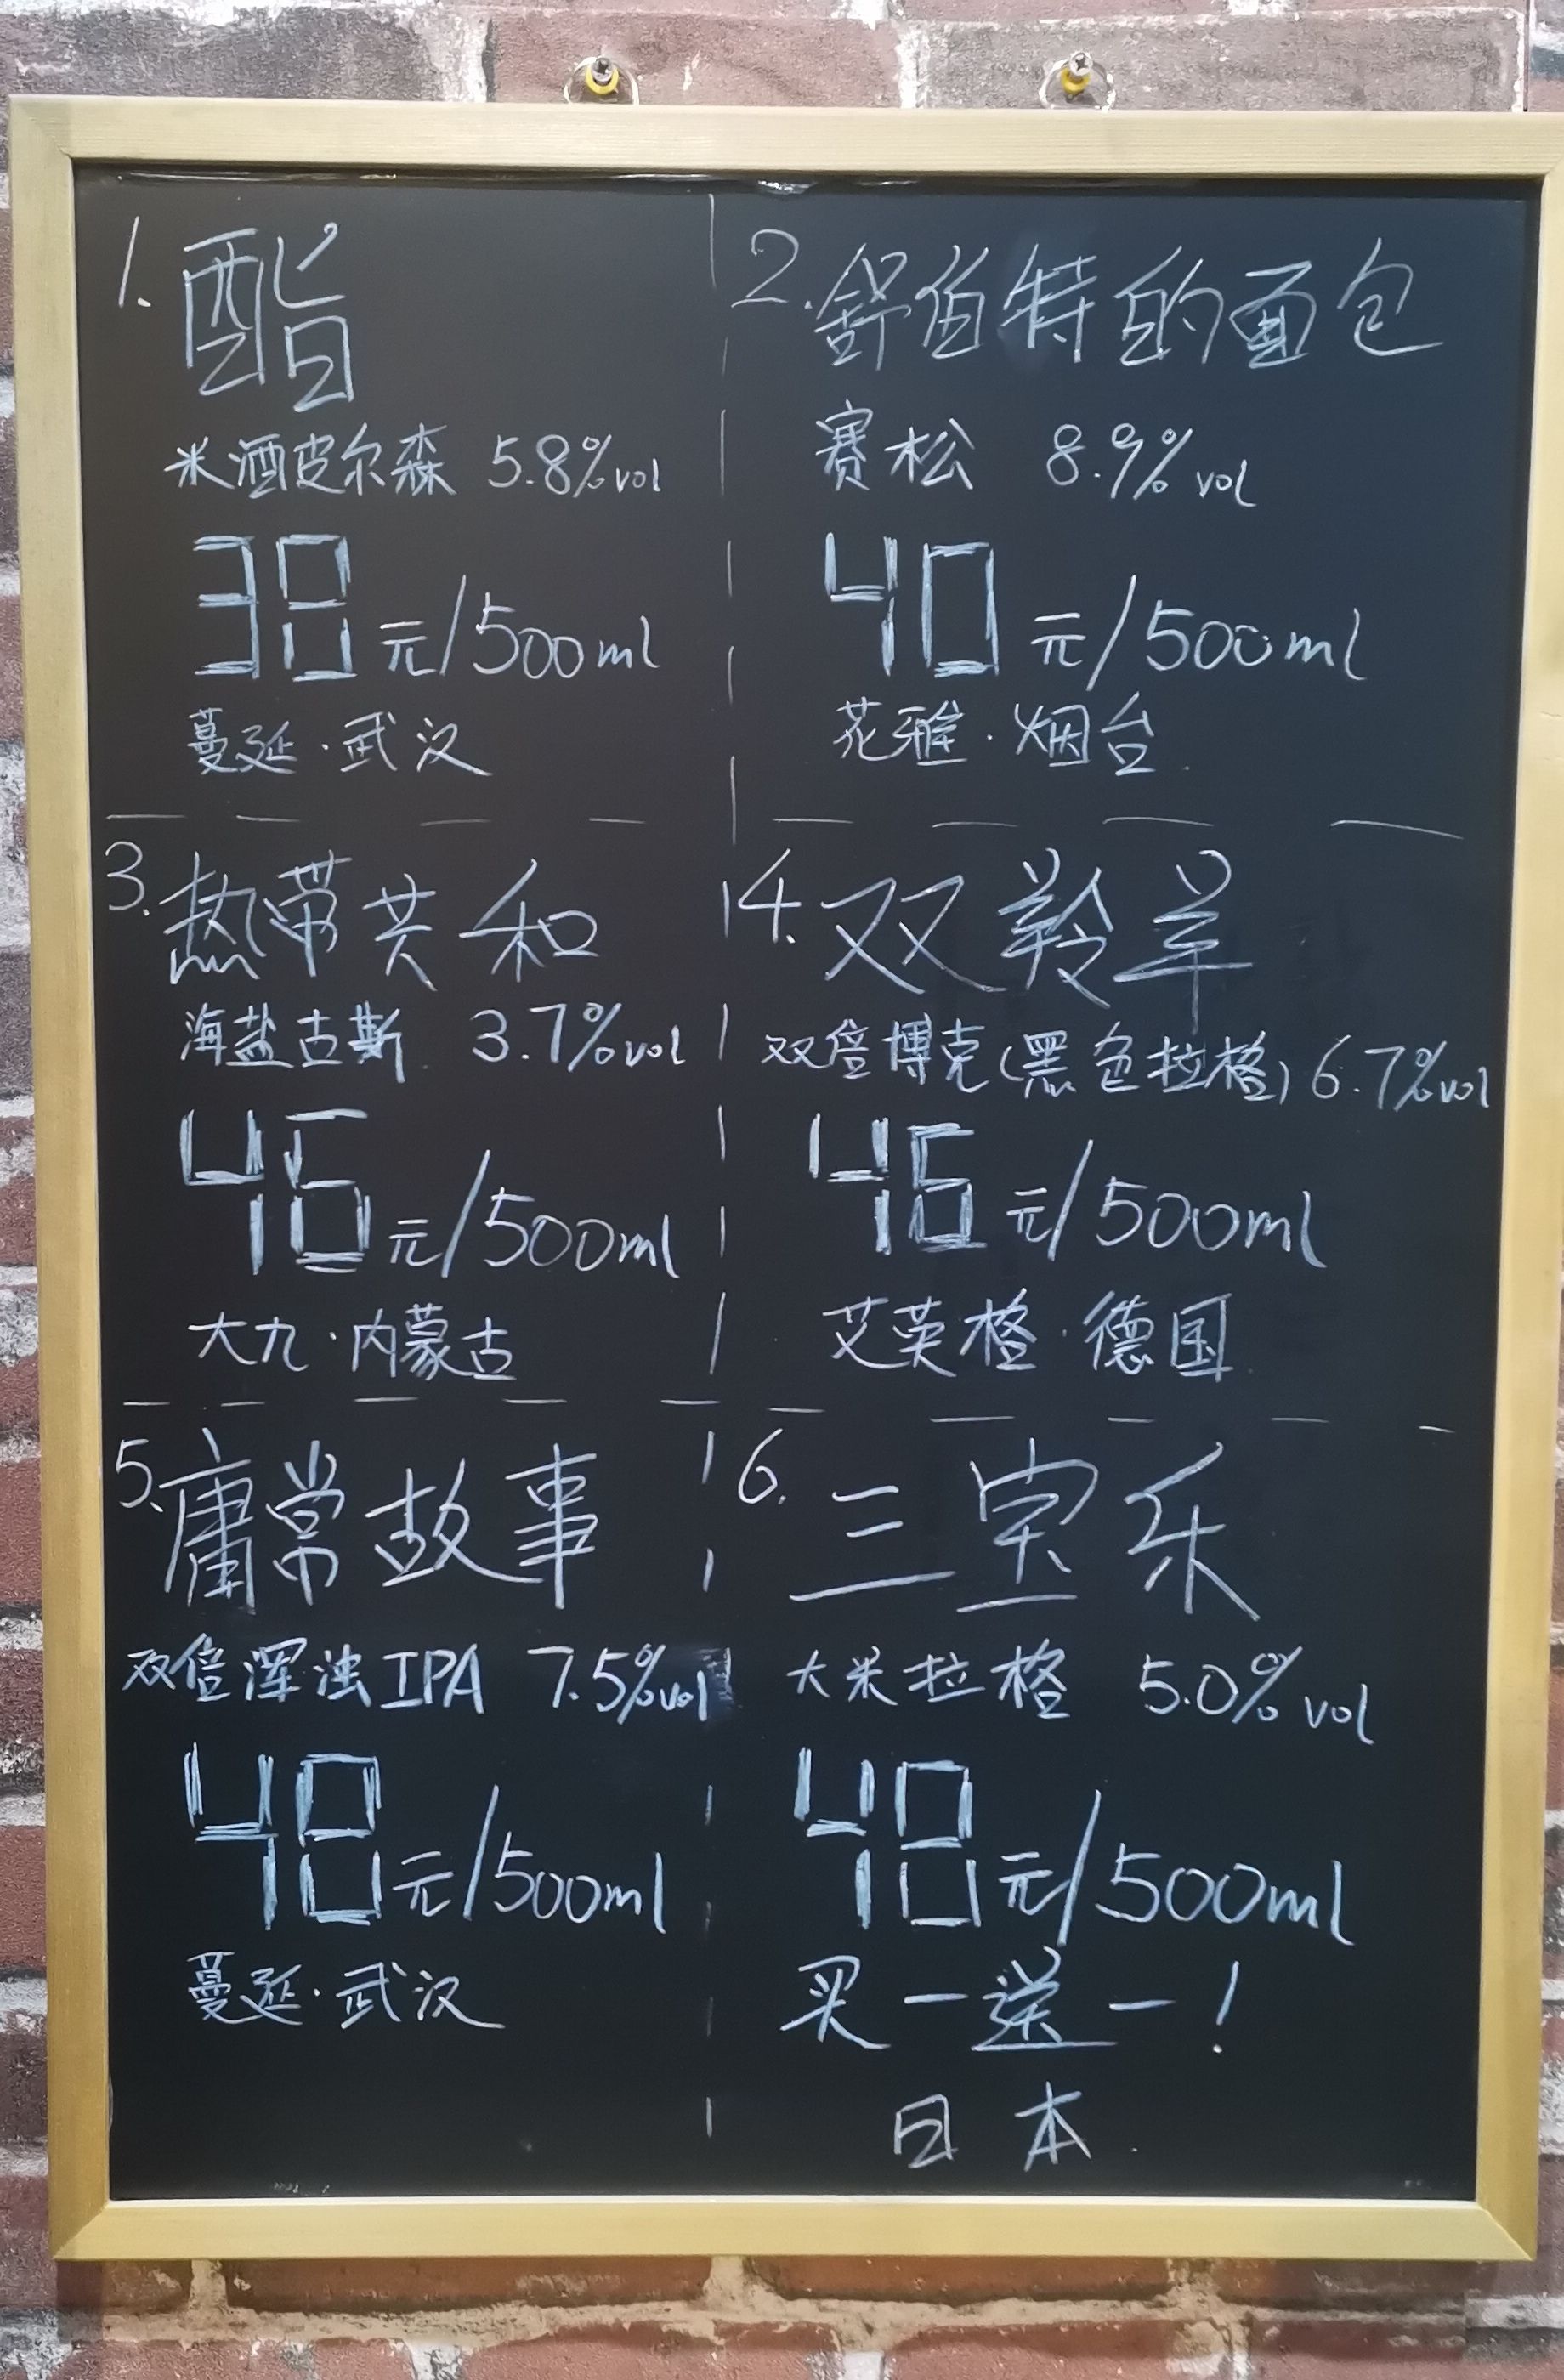 1. 酯
米酒皮尔森 5.8%vol
38元/500ml
蔓延·武汉
2. 舒伯特的面包
赛松 8.9%vol
40元/500ml
花雅·烟台
3. 热带共和
海盐古斯 3.7%vol
45元/500ml
大九·内蒙古
4. 双羚羊
双倍博克(黑色拉格) 6.7%vol
45元/500ml
艾英格·德国
5. 庸常故事
双倍浑浊IPA 7.5%vol
48元/500ml
蔓延·武汉
6. 三宝乐
大米拉格 5.0%vol
48元/500ml
买一送一!
日本